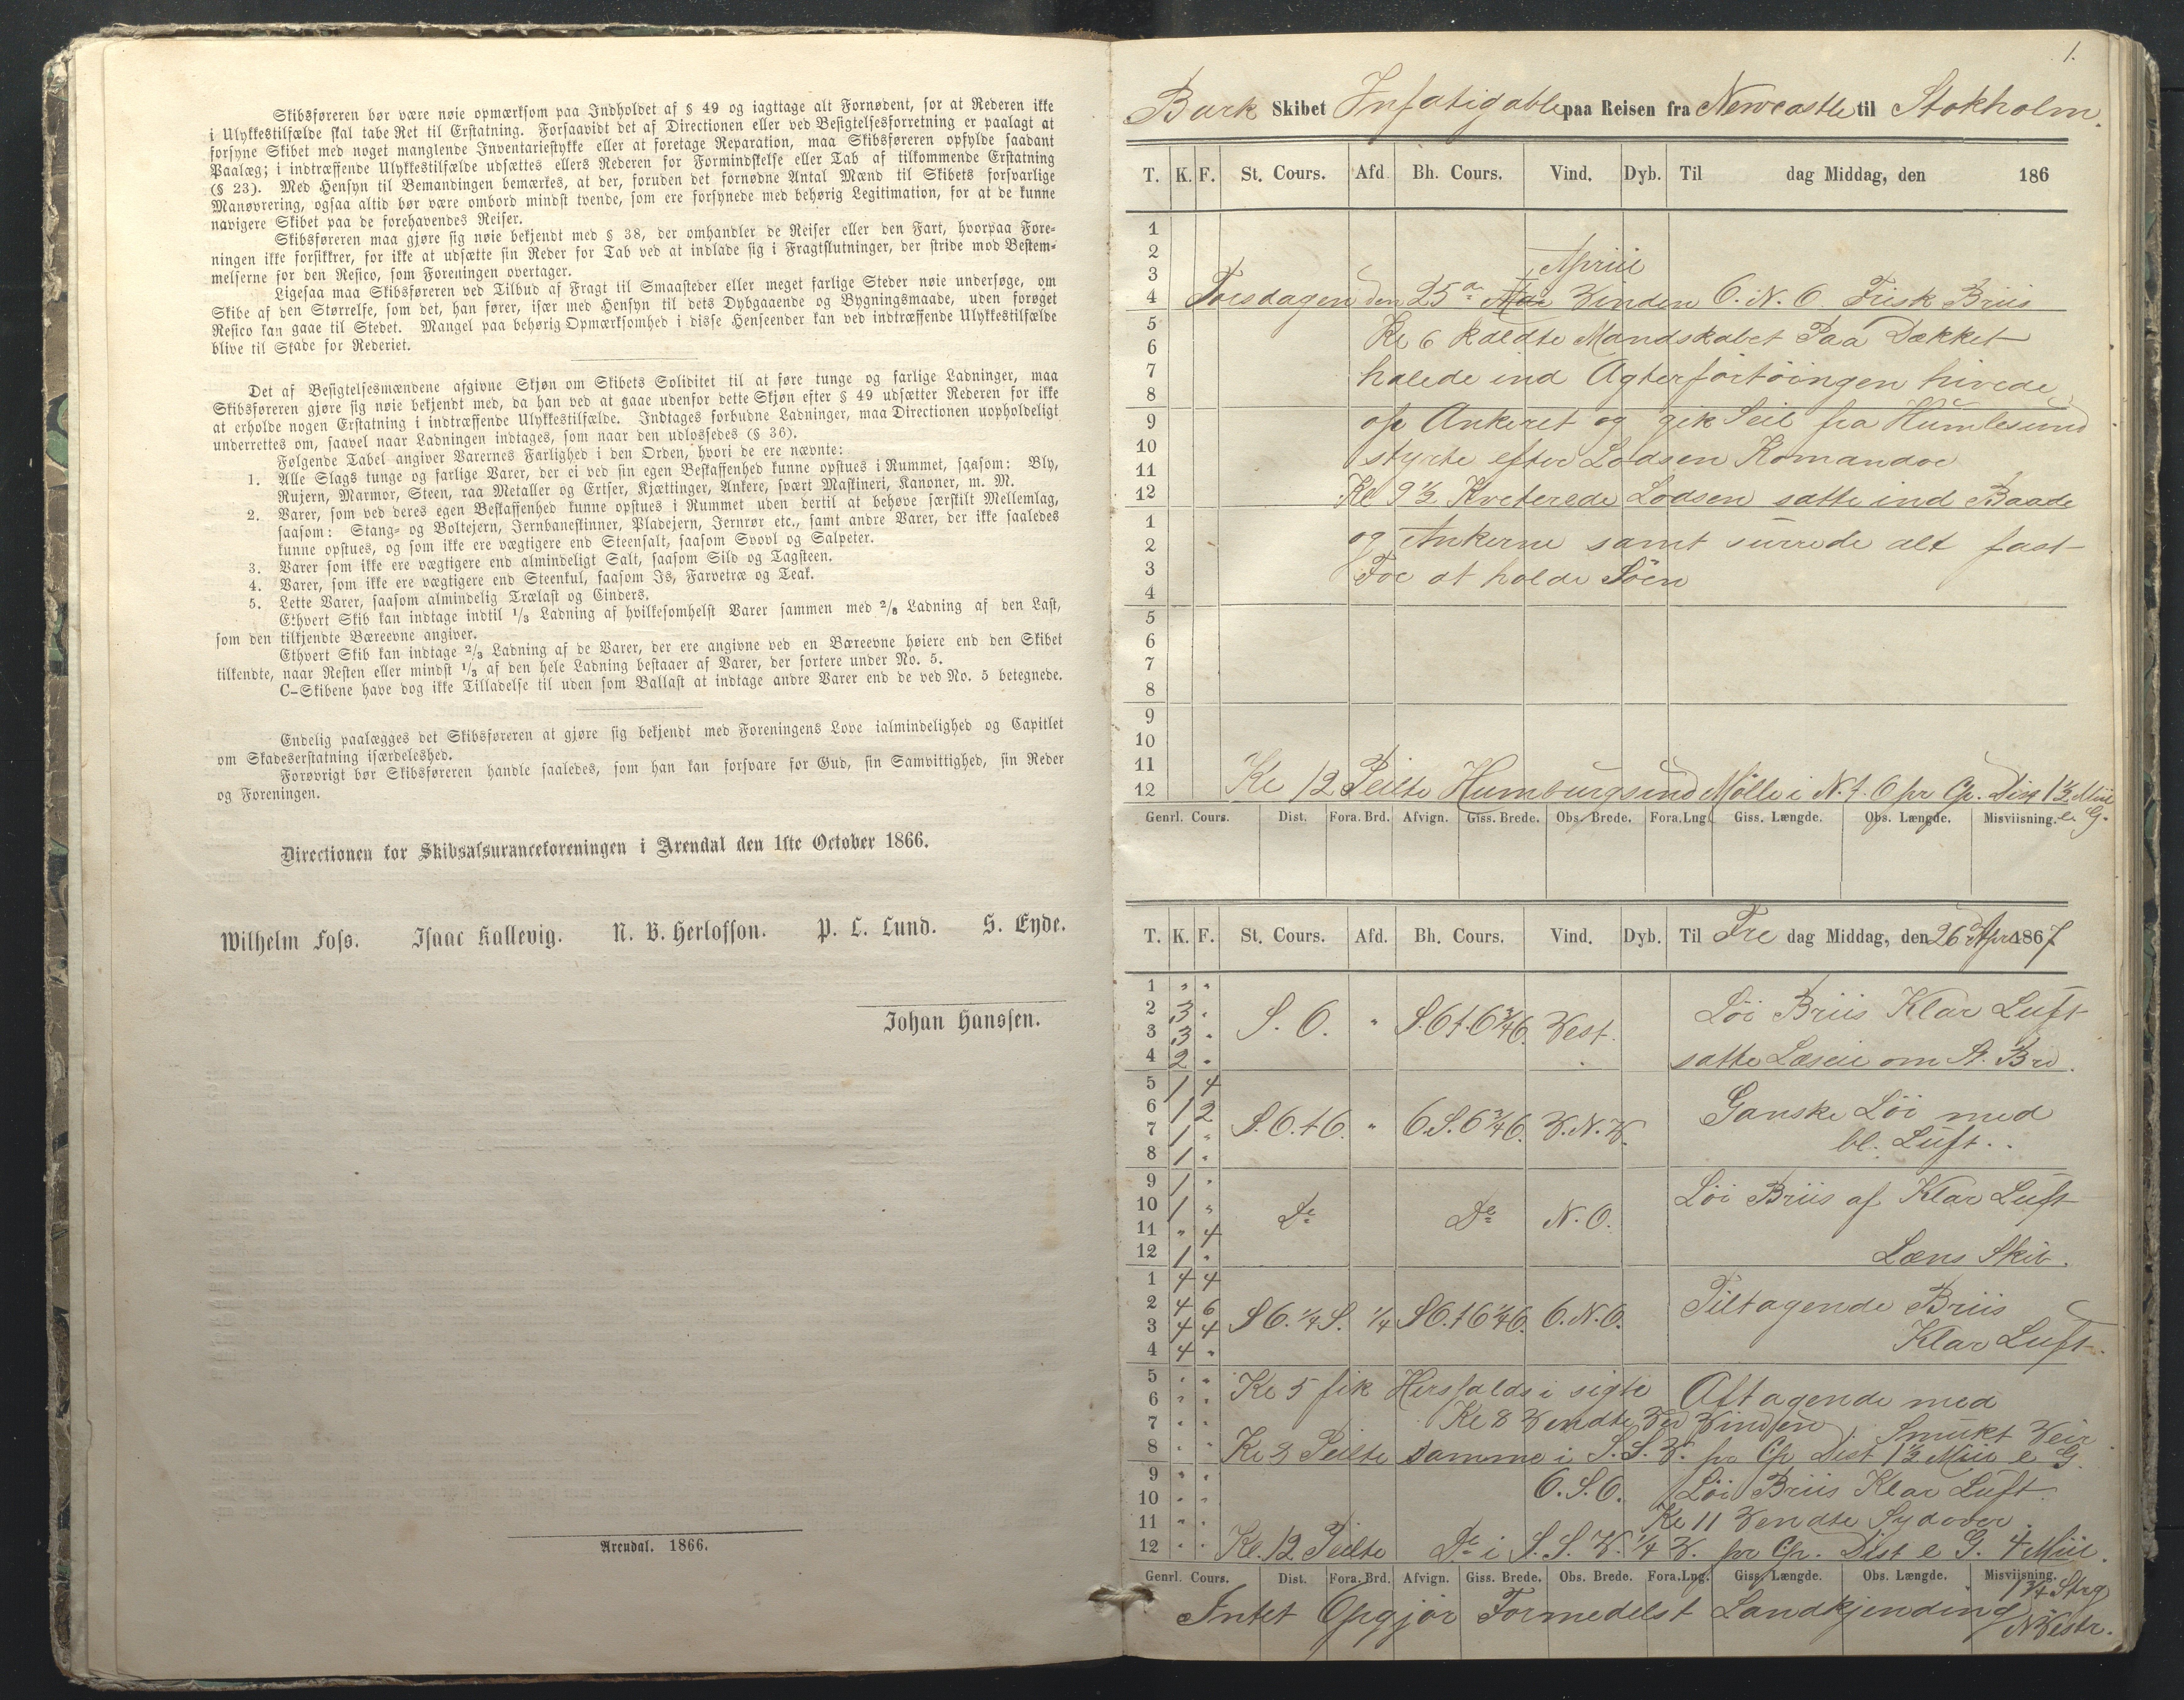 Skibsføreren bør være nøie opmærksom paa Indholdet af § 49 og iagttage alt Fornødent, for at Rederen ikke
i Ulykkestilfælde skal tabe Ret til Erstatning. Forsaavidt det af Directionen eller ved Besigtelsesforretning er paalagt at
forsyne Skibet med noget manglende Inventariestykke eller at foretage Reparation, maa Skibsføreren opfylde saadant
Paalæg; i indtræffende Ulykkestilfælde udsættes ellers Rederen for Formindskelse eller Tab af tilkommende Erstatning
(§ 23). Med Hensyn til Bemandingen bemærkes, at der, foruden det fornødne Antal Mænd til Skibets forsvarlige
Manøvrering, ogsaa altid bør være ombord mindst tvende, som ere forsynede med behørig Legitimation, for at de kunne
navigere Skibet paa de forehavendes Reiser.
Skibsføreren maa gjøre sig nøie bekjendt med § 38, der omhandler de Reiser eller den Fart, hvorpaa Fore-
ningen ikke forsikkrer, for ikke at udsætte sin Reder for Tab ved at indlade sig i Fragtslutninger, der stride mod Bestem-
melserne for den Resico, som Foreningen overtager.
Ligesaa maa Skibsføreren ved Tilbud af Fragt til Smaasteder eller meget farlige Steder nøie undersøge, om
Skibe af den Størrelse, som det, han fører, især med Hensyn til dets Dybgaaende og Bygningsmaade, uden forøget
Resico kan gaae til Stedet. Mangel paa behørig Opmærksomhed i disse Henseender kan ved indtræffende Ulykkestilfælde
blive til Skade for Rederiet.
Det af Besigtelsesmændene afgivne Skjøn om Skibets Soliditet til at føre tunge og farlige Ladninger, maa
Skibsføreren gjøre sig nøie bekjendt med, da han ved at gaae udenfor dette Skjøn efter § 49 udsætter Rederen for ikke
at erholde nogen Erstatning i indtræffende Ulykkestilfælde. Indtages forbudne Ladninger, maa Directionen uopholdeligt
underrettes om, saavel naar Ladningen indtages, som naar den udlossedes (§ 36).
Følgende Tabel angiver Varernes Farlighed i den Orden, hvori de ere nævnte:
1. Alle Slags tunge og farlige Varer, der ei ved sin egen Beskaffenhed kunne opstues i Rummet, saasom: Bly,
Rujern, Marmor, Steen, raa Metaller og Ertser, Kjættinger, Ankere, svært Maskineri, Kanoner, m. M.
2. Varer, som ved deres egen Beskaffenhed kunne opstues i Rummet uden dertil at behøve særskilt Mellemlag,
saasom: Stang- og Boltejern, Jernbaneskinner, Pladejern, Jernrør etc., samt andre Varer, der ikke saaledes
kunne opstues, og som ikke ere vægtigere end Steensalt, saasom Svovl og Salpeter.
3. Varer som ikke ere vægtigere end almindeligt Salt, saasom Sild og Tagsteen.
4. Varer, som ikke ere vægtigere end Steenkul, saasom Is, Farvetræ og Teak.
5. Lette Varer, saasom almindelig Trælast og Cinders.
Ethvert Skib kan indtage indtil 1/3 Ladning af hvilkesomhelst Varer sammen med 2/3 Ladning af den Last,
som den tilkjendte Bæreevne angiver.
Ethvert Skib kan indtage 2/3 Ladning af de Varer, der ere angivne ved en Bæreevne høiere end den Skibet
tilkendte, naar Resten eller mindst 1/3 af den hele Ladning bestaaer af Varer, der sortere under No. 5.
C-Skibene have dog ikke Tilladelse til uden som Ballast at indtage andre Varer end de ved No. 5 betegnede.
Endelig paalægges det Skibsføreren at gjøre sig bekjendt med Foreningens Love ialmindelighed og Capitlet
om Skadeserstatning isærdeleshed.
Forøvrigt bør Skibsføreren handle saaledes, som han kan forsvare for Gud, sin Samvittighed, sin Reder
og Foreningen.
Directionen for Skibsassuranceforeningen i Arendal den 1ste October 1866.
Wilhelm Foss. Isaac Kallevig. N. B. Herlofson. P. L. Lund. S. Eyde.
Johan Hanssen.
Arendal. 1866.
1.
Bark Skibet Infatigable paa Reisen fra Newcastle til Stokholm.
T. K. F. St. Cours. Afd. Bh. Cours. Vind. Dyb. Til dag Middag, den 186
1
2
3 April
4 Torsdagen den 25de Mai Vinden O.N.O. Frisk Briis
5 Kl 6 kaldte Mandskabet Paa Dækket
6
7 halede ind Agterfortöingen hivede
8
9 op Ankeret og gik Seil fra Humlesund
10 styrte efter Lodsen Komandoe
11
12 Kl 9 1/2 Kviterede Lodsen satte ind Baade
1
2 og Ankerne samt surrede alt fast
3 For at holde Söen
4
5
6
7
8
9
10
11
12 Kl 12 Peilte Humburgsund Mölle i N.t.O pr Cp. Dist 1 1/2 Miil e. G.
Genrl. Cours. Dist. Fora. Brd. Afvign. Giss. Brede. Obs. Brede. Fora. Lng. Giss. Længde. Obs. Længde. Misviisning.
T. K. F. St. Cours. Afd. Bh. Cours. Vind. Dyb. Til Fre dag Middag, den 26de Apr 1867
1 " "
2 3 " Löi Briis Klar Luft
3 3 " S.O. " S.O.t.O 3/4 O. Vest.
4 2 " satte Læseil om St. Brd.
5 1 4
6 1 2 Ganske Löi med
7 1 " S.O.t.O. " O.S.O 3/4 O. V.N.V.
8 1 " bl. Luft.
9 1 " Löi Briis af Klar Luft
10 1 " De De N.O.
11 " 4
12 1 " Læns Skib.
1 4 4
2 4 6 Tiltagende Briis
3 4 4 SO. 1/4 S. 1/4 SO.t.O 1/4 O. O.N.O.
4 4 " Klar Luft.
5 " " Kl 5 fik i sigte Aftagende med
6 " "
7 " " Kl 8 Vendte Ved Vinden Smukt Veir
8 " " Kl 8 Peilte samme i S.S.V. pr Cp Dist 1 1/2 Miil e G.
9 " "
10 " " O.S.O. Löi Briis Klar Luft
11 " " Kl 11 Vendte Sydover.
12 " " Kl. 12 Peilte De i S.S.V. 1/4 V. pr Cp. Dist e G. 4 Miil.
Genrl. Cours. Dist. Fora. Brd. Afvign. Giss. Brede. Obs. Brede. Fora. Lng. Giss. Længde. Obs. Længde. Misviisning.
1 3/4 Strg
Intet Opgjör Formedelst Landkjending NVestr.